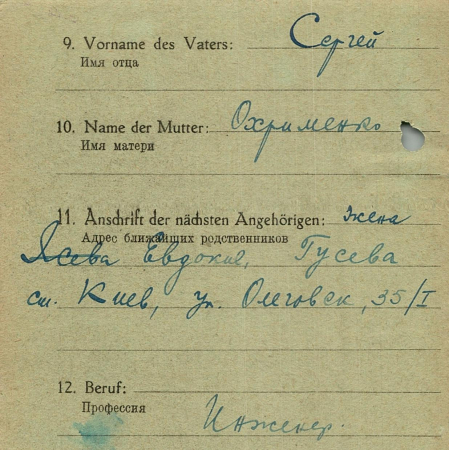 9. Vorname des Vaters: Сергей
Имя отца
10. Name der Mutter: Охрименко
Имя матери
11. Anschrift der nächsten Angehörigen: жена
Адрес ближайших родственников
Евдокия, Гусева
ст. Киев, ул. Олеговск, 35/I
12. Beruf:
Профессия
Инженер.